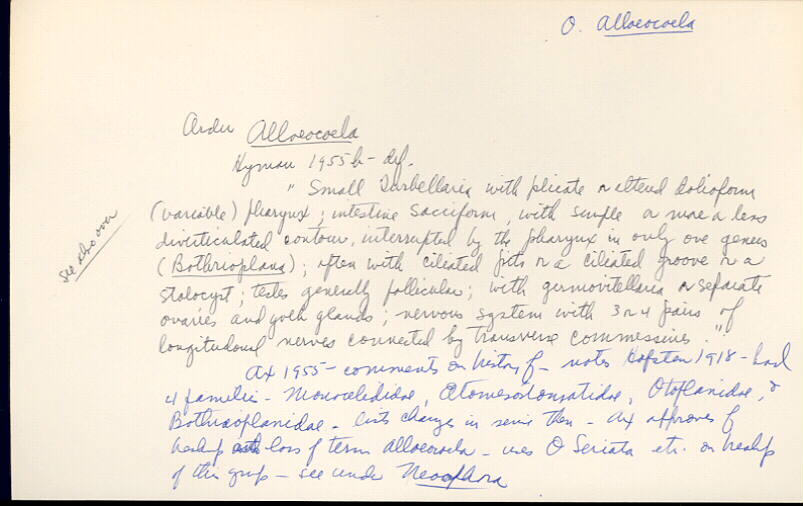 O. Alloeocoela
Order Alloeocoela
Hyman 1955b - def.
"Small Turbellaria with plicate or altered doliiform
(variable) pharynx; intestine sacciform, with simple or more or less
diverticulated contour, interrupted by the pharynx in only one genus
(Bothrioplana); often with ciliated pits or a ciliated groove or a
statocyst; testes generally follicular; with germovitellaria or separate
ovaries and yolk glands; nervous system with 3 or 4 pairs of
longitudinal nerves connected by transverse commissures."
see also over
Ax 1955 - comments on history of - notes Hofsten 1918 - had
4 families - Monocelididae, Otomesostomatidae, Otoplanidae, &
Bothrioplanidae - lists changes in since then - Ax approves of
loss of term alloeocoela - uses O Seriata etc. on
of this group - see under Neoophora